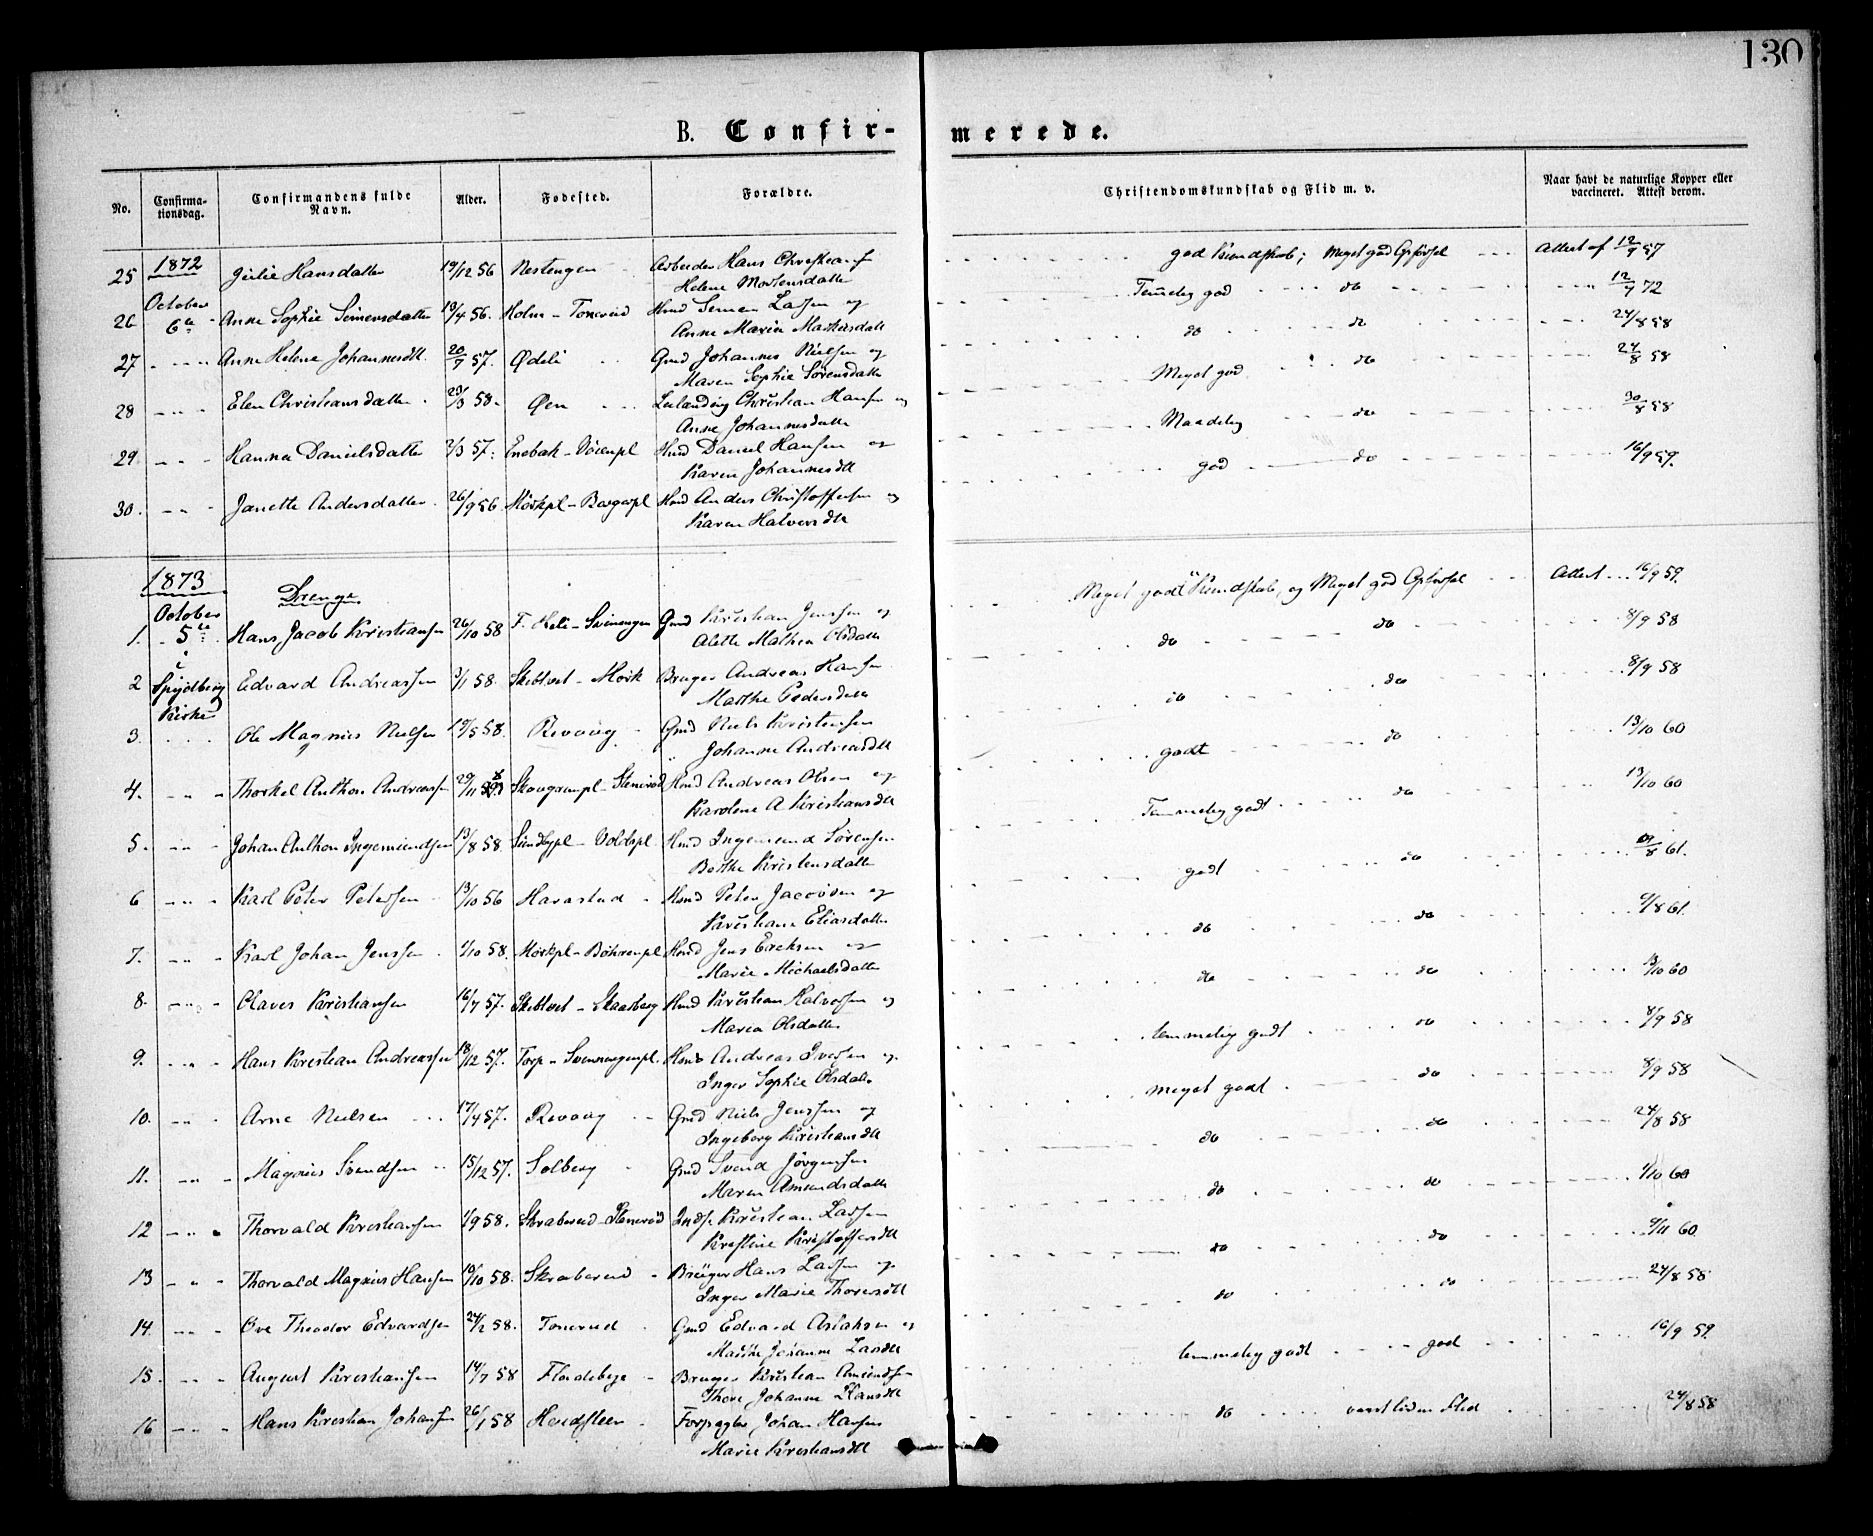 130
B. Confir-merede.
No.
Confirma-
tionsdag.
Confirmandens fulde
Navn.
Alder.
Fødested.
Forældre.
Christendomskundskab og Flid m. v.
Naar havt de naturlige Kopper eller
vaccineret. Attest derom.
25 1872 Julie Hansdatter 19/12 56 Nestengen Arbeider Hans
Helene Mortensdatter
god Kundskab; Meget god Opførsel Attest af 12/9 57
26 October 6te Anne Sophie 19/4 56. Holm - Tonerud Hmd Larsen og
Anne Maria
god do 12/9 72
27 Anne Helene Johannesdtt. 20/9 57. Ødeli Gmd Johannes Nielsen og
Maren Sophie Sørensdatter
do do 24/8 58
28 Elen Christiansdatter 58. Øen Christian Hansen og
Anne Johannesdatter
Meget god do 24/8 58
29 Hanna Danielsdatter 2/3 57. Enebak Hmd Daniel Hansen og
Karen Johannesdtt
Maadelig do 30/8 58
30. Janette Andersdatter 26/9 56 Mørkpl - Borgerpl Hmd Anders Christoffersen og
Karen Halvorsdtt
god do 16/9 59.
1873
Drenge
1. October 5te Hans Jacob Kristiansen 26/10 58 Gmd Kristian Jensen og
Alette Mathea Olsdatter
Meget godt Kundskab, og Meget god Opførsel Attest 16/9 59.
2 i Spydberg Kirke Edvard Andreassen 3/1 58. Skibtvet - Mørk Bruger Andreas Hansen
Marthe Pedersdatter
do do 8/9 58
3. Ole Magnus Nielsen 19/5 58. Revoug Gmd Niels Kristensen
Johanne Andreasdtt
do do 8/9 58
4. Thorkel Anthon Andreassen 29/11 Hmd Andreas Olsen og
Karoline A Kristiansdtt
godt do 13/10 60
5. Johan Anthon Ingemundsen 13/8 58. Hmd Ingemund Sørensen
Kristensdatter
Temmelig godt do 13/10 60
6 Karl Peter Petersen 13/10 56 Harastad Hmd Peter Jacobsen og
Kristiane Eliasdatter
godt do /8 61.
7. Karl Johan Jensen 1/10 58. Hmd Jens Eriksen og
Marie Michaelsdatter
do do /8 61.
8. Olaves Kristiansen 16/7 57. Skibtvet - Skaaberg Hmd Kristian Halvorsen og
Maren Olsdatter
do do /10 60
9. Hans Kristian Andreassen 18/12 57. Torp - Hmd Andreas Iversen og
Inger Sophie Olsdatter
temmelig godt do 8/9 58
10. Arne Nielsen 17/4 57. Revoug Gmd Niels Jensen og
Ingeborg Kristiansdtt
meget godt do 8/9 58
11. Magnus Svendsen 15/12 57. Solberg Gmd Svend Jørgensen
Maren Amundsdatter
do do 24/8 58
12 Thorvald Kristiansen 1/9 58. Skraberud - Stenerød Indst Kristian Larsen
Kristine Kristoffersdtt
do do 1/10 60
13 Thorvald Magnus Hansen 10/10 58. Skraberud Bruger Hans Larsen og
Inger Marie Thoresdtt
do do 9/11 60
14. Ove Theodor Edvardsen 24/2 58. Tonerud Gmd Edvard Aslaksen og
Marthe Johanne Larsdtt
do do 24/8 58
15. August Kristiansen 14/7 58 Bruger Kristian Amundsen
Thore Johanne Hansdtt
temmelig godt god 16/9 59.
16 Hans Kristian Johansen 26/1 58 Johan Hansen
Marie Kristiansdtt
do Flid 24/8 58